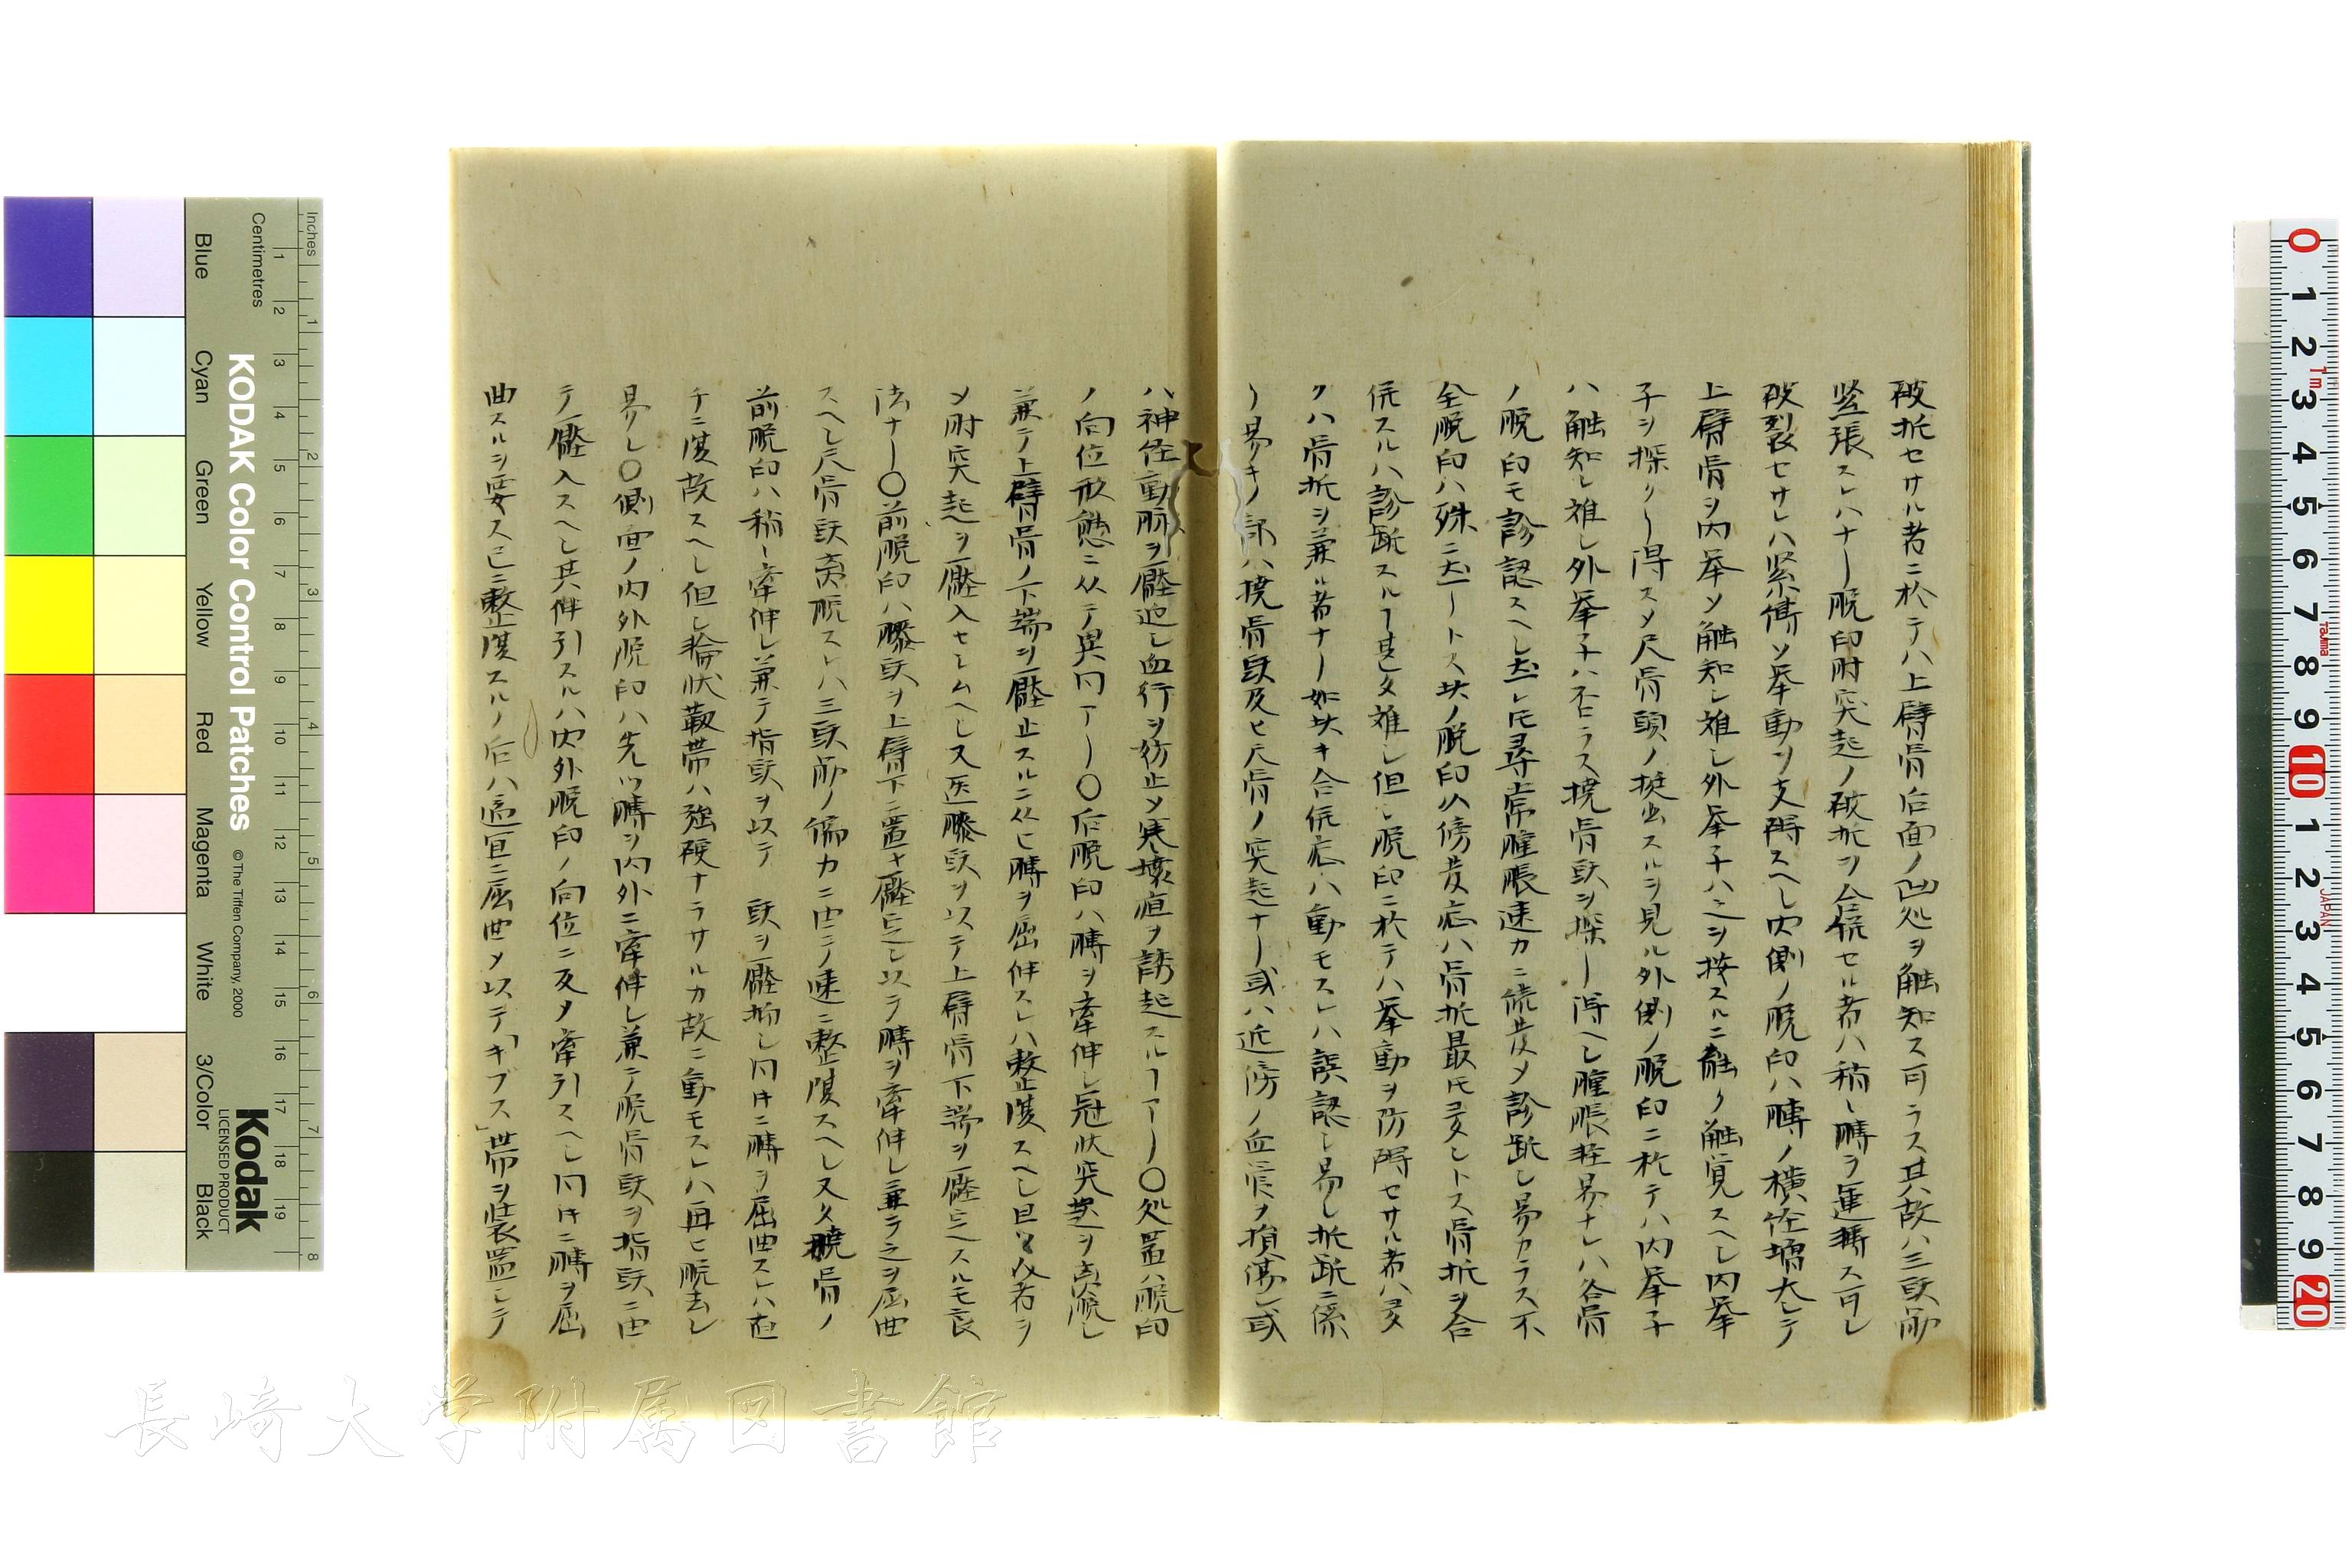 破折セサル者ニ於テハ上臂骨后面ノ凹処ヲ触知ス可ラス其故ハ三頭筋
緊張スレハナリ脱臼肘突起ノ破折ヲ合併セル者ハ稍々膊ヲ運搦ス可シ
破裂セサレハ緊傅ソ挙動ヲ支障スヘシ内側ノ脱臼ハ膊ノ横径増大シテ
上臂骨ヲ内挙ソ触知シ難シ外挙子ハ之ヲ按スルニ能ク触覚スヘシ内挙
子ヲ探リ得スメ尺骨頭ノ挺出スルヲ見ル外側ノ脱臼ニ於テハ内挙子
ハ触知シ難シ外挙子ハ不ラス撓骨頭ヲ探リ得ヘシ腫脹軽易ナレハ各骨
ノ脱臼モ診認スヘシ然レ𪜈尋常腫脹速カニ続発メ診断シ易カラス不
全脱臼ハ殊ニ然リトス此ノ脱臼ハ傍発症ハ骨折最𪜈多シトス骨折ヲ合
併スルハ診断スルヿ甚タ難シ但シ脱臼ニ於テハ挙動ヲ防障セサル者ハ多
クハ骨折ヲ兼ル者ナリ如此キ合併症ハ動モスレハ誤認シ易シ折断ニ係
リ易キノ部ハ撓骨頭及ヒ尺骨ノ突起ナリ或ハ近傍ノ血管ヲ損傷シ或
ハ神経動脈ヲ壓迫シ血行ヲ妨止メ寒壊疽ヲ誘起スルヿアリ〇処置ハ脱臼
ノ向位形態ニ从テ異同アリ〇后脱臼ハ膊ヲ牽伸シ冠状突起ヲ離脱シ
兼テ上臂骨ノ下端ヲ壓止スルニ从ヒ膊ヲ屈伸スレハ整復スヘシ且ツ又者ヲ
メ肘突起ヲ壓入セシムヘシ又医膝頭ヲ以テ上臂骨下端ヲ壓定スルモ良
法ナリ〇前脱臼ハ膝頭ヲ上臂下ニ置キ壓定シ以テ膊ヲ牽伸シ兼テ之ヲ屈曲
スヘシ尺骨頭離脱スレハ三頭筋ノ偏力ニ由テ速ニ整復スヘシ又タ撓骨ノ
前脱臼ハ稍々牽伸シ兼テ指頭ヲ以テ 頭ヲ壓拒シ同時ニ膊ヲ屈曲スレハ直
チニ復故スヘシ但シ輪状靱帯ハ強硬ナラサルカ故ニ動モスレハ再ヒ脱去シ
易シ〇側面ノ内外脱臼ハ先ツ膊ヲ内外ニ牽伸シ兼テ脱骨頭ヲ指頭ニ由
テ壓入スヘシ其伸引スルハ内外脱臼ノ向位ニ反メ牽引スヘシ同時ニ膊ヲ屈
曲スルヲ要ス已ニ整復スルノ后ハ適宜ニ屈曲メ以テ「ギブス」帯ヲ装置シテ
Inches
Centimetres
Blue
Cyan
Green
Yellow
Red
Magenta
White
3/Color
Black
KODAK Color Control Patches
© The Tiffen Company, 2000
Kodak
LICENSED PRODUCT
長崎大学附属図書館